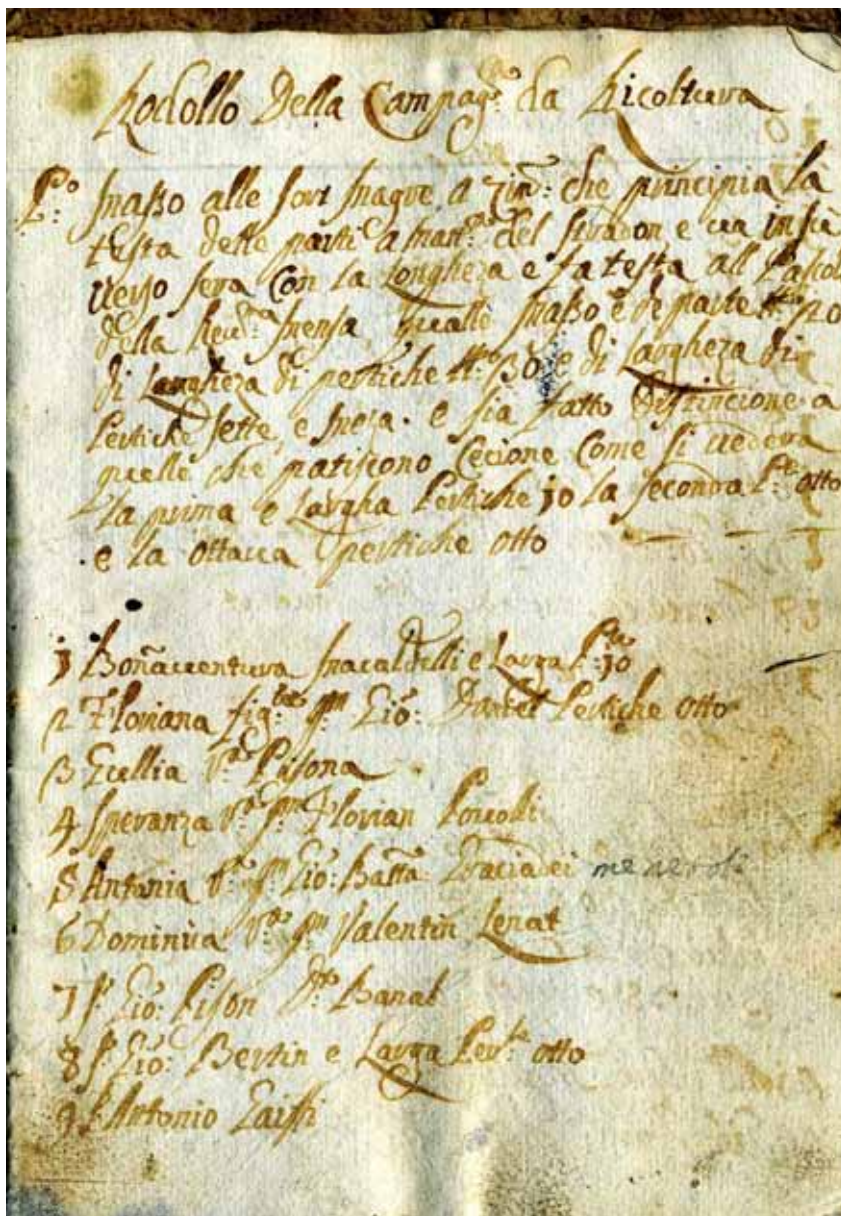 Rodollo Della Campag.a da Ricoltura
P.o Masso alle che principia la
testa delle parti a del stradon e ua in sù
uerso sera con la Longheza e fa testa all Pascol
della Reu.ma Mensa, quallo Masso è de parte N.o 20
di Longheza di pertiche N.o 30 e di Largheza di
Pertiche sette, e meza. e sia fatto distincione a
quelle che patiscono Cecione Come si uedera
La prima e Largha Pertiche 10 la seconda P.e otto
e la ottaua pertiche otto
1 Bonauentura e Larga P.e 10
2 Floriana fig. qm Gio: Dardel Pertiche otto
3 V.a Pisona
4 Speranza V.a qm Florian
5 Antonia V.a qm Gio: Batta
6 Dominica V.a qm Valentin Zenat
7 S.r Gio: Pison D.o Banal
8 S.r Gio: Bertin e Larga Pert.e otto
9 S.r Antonio